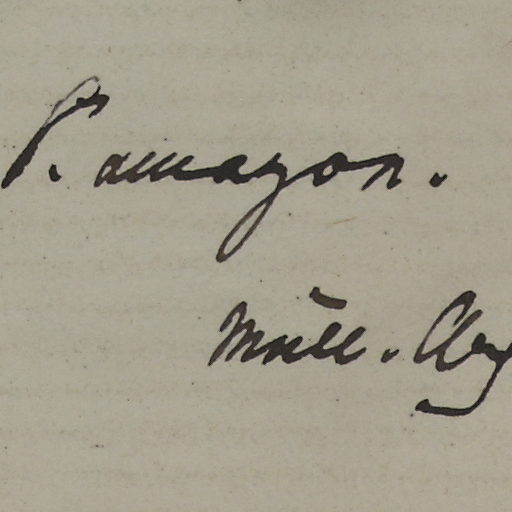 P. amazon.
Müll. Arg